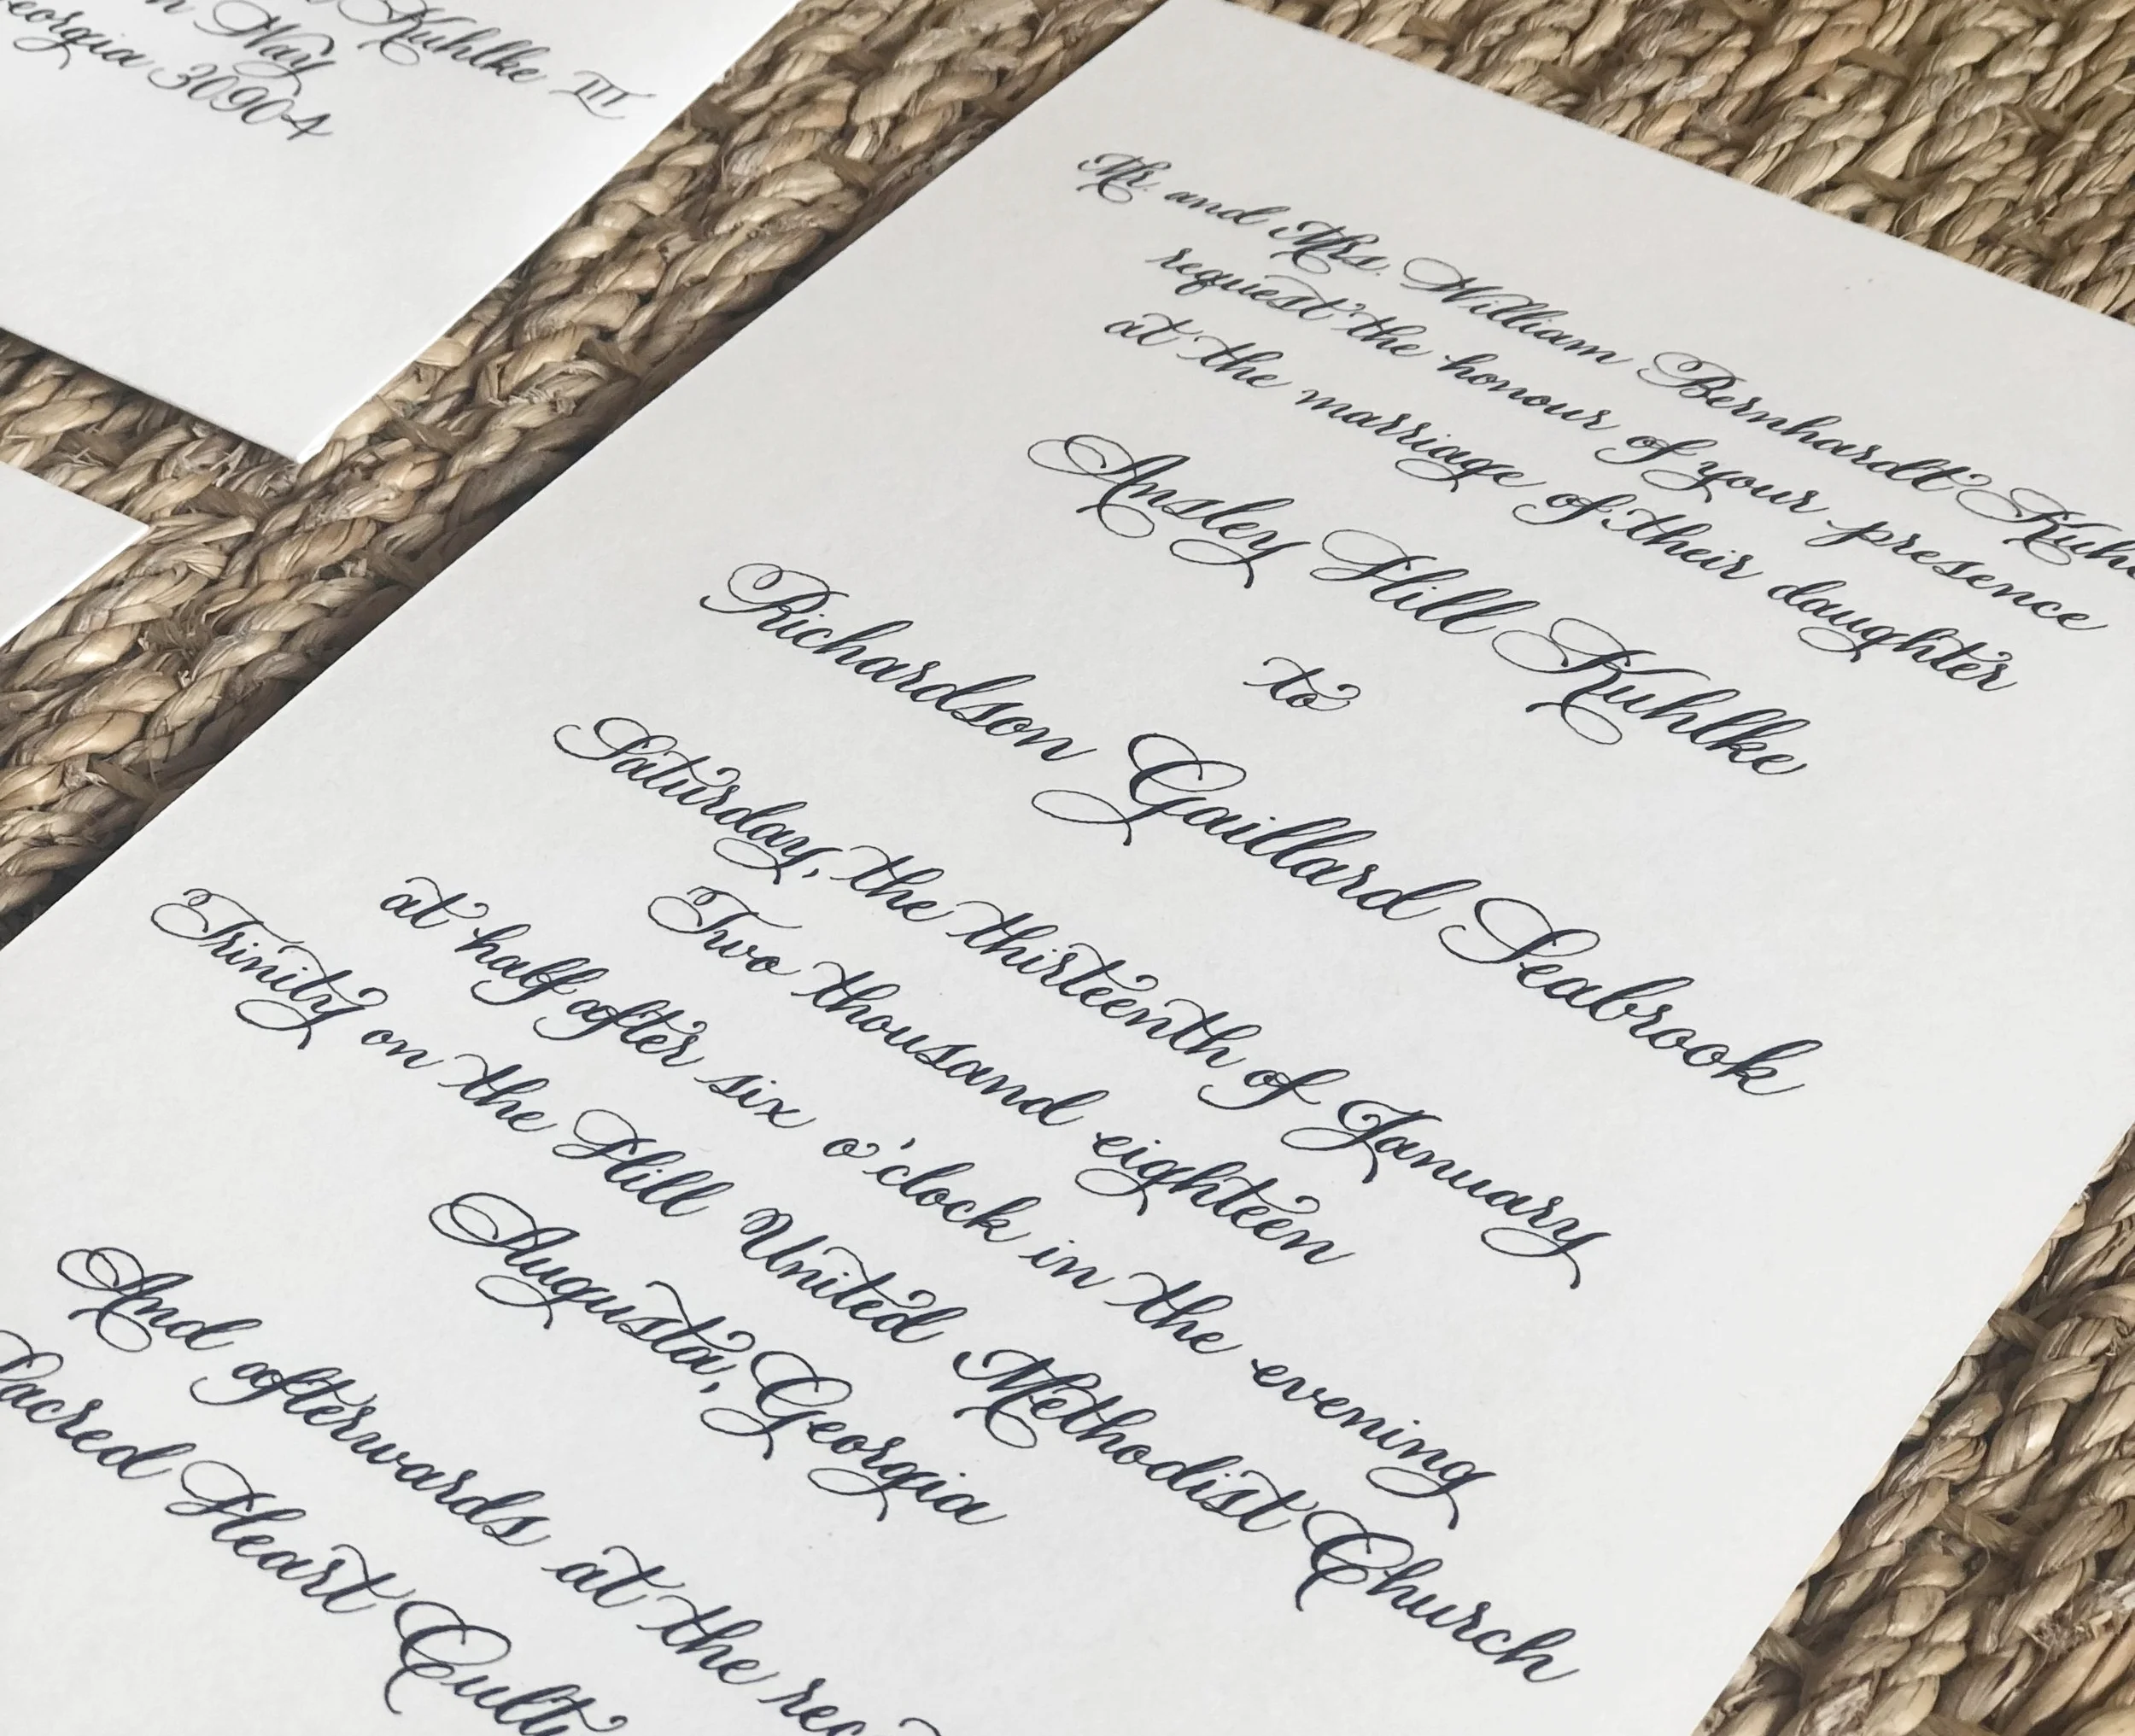 Kuhlke III
Way
30904
Mr. and Mrs. William Bernhardt
request the honour of your presence
at the marriage of their daughter
Ansley Hill Kuhlke
to
Richardson Gaillard Seabrook
Saturday, the thirteenth of January
Two thousand eighteen
at half after six o'clock in the evening
Trinity on the Hill United Methodist Church
Augusta, Georgia
And afterwards at the
Sacred Heart